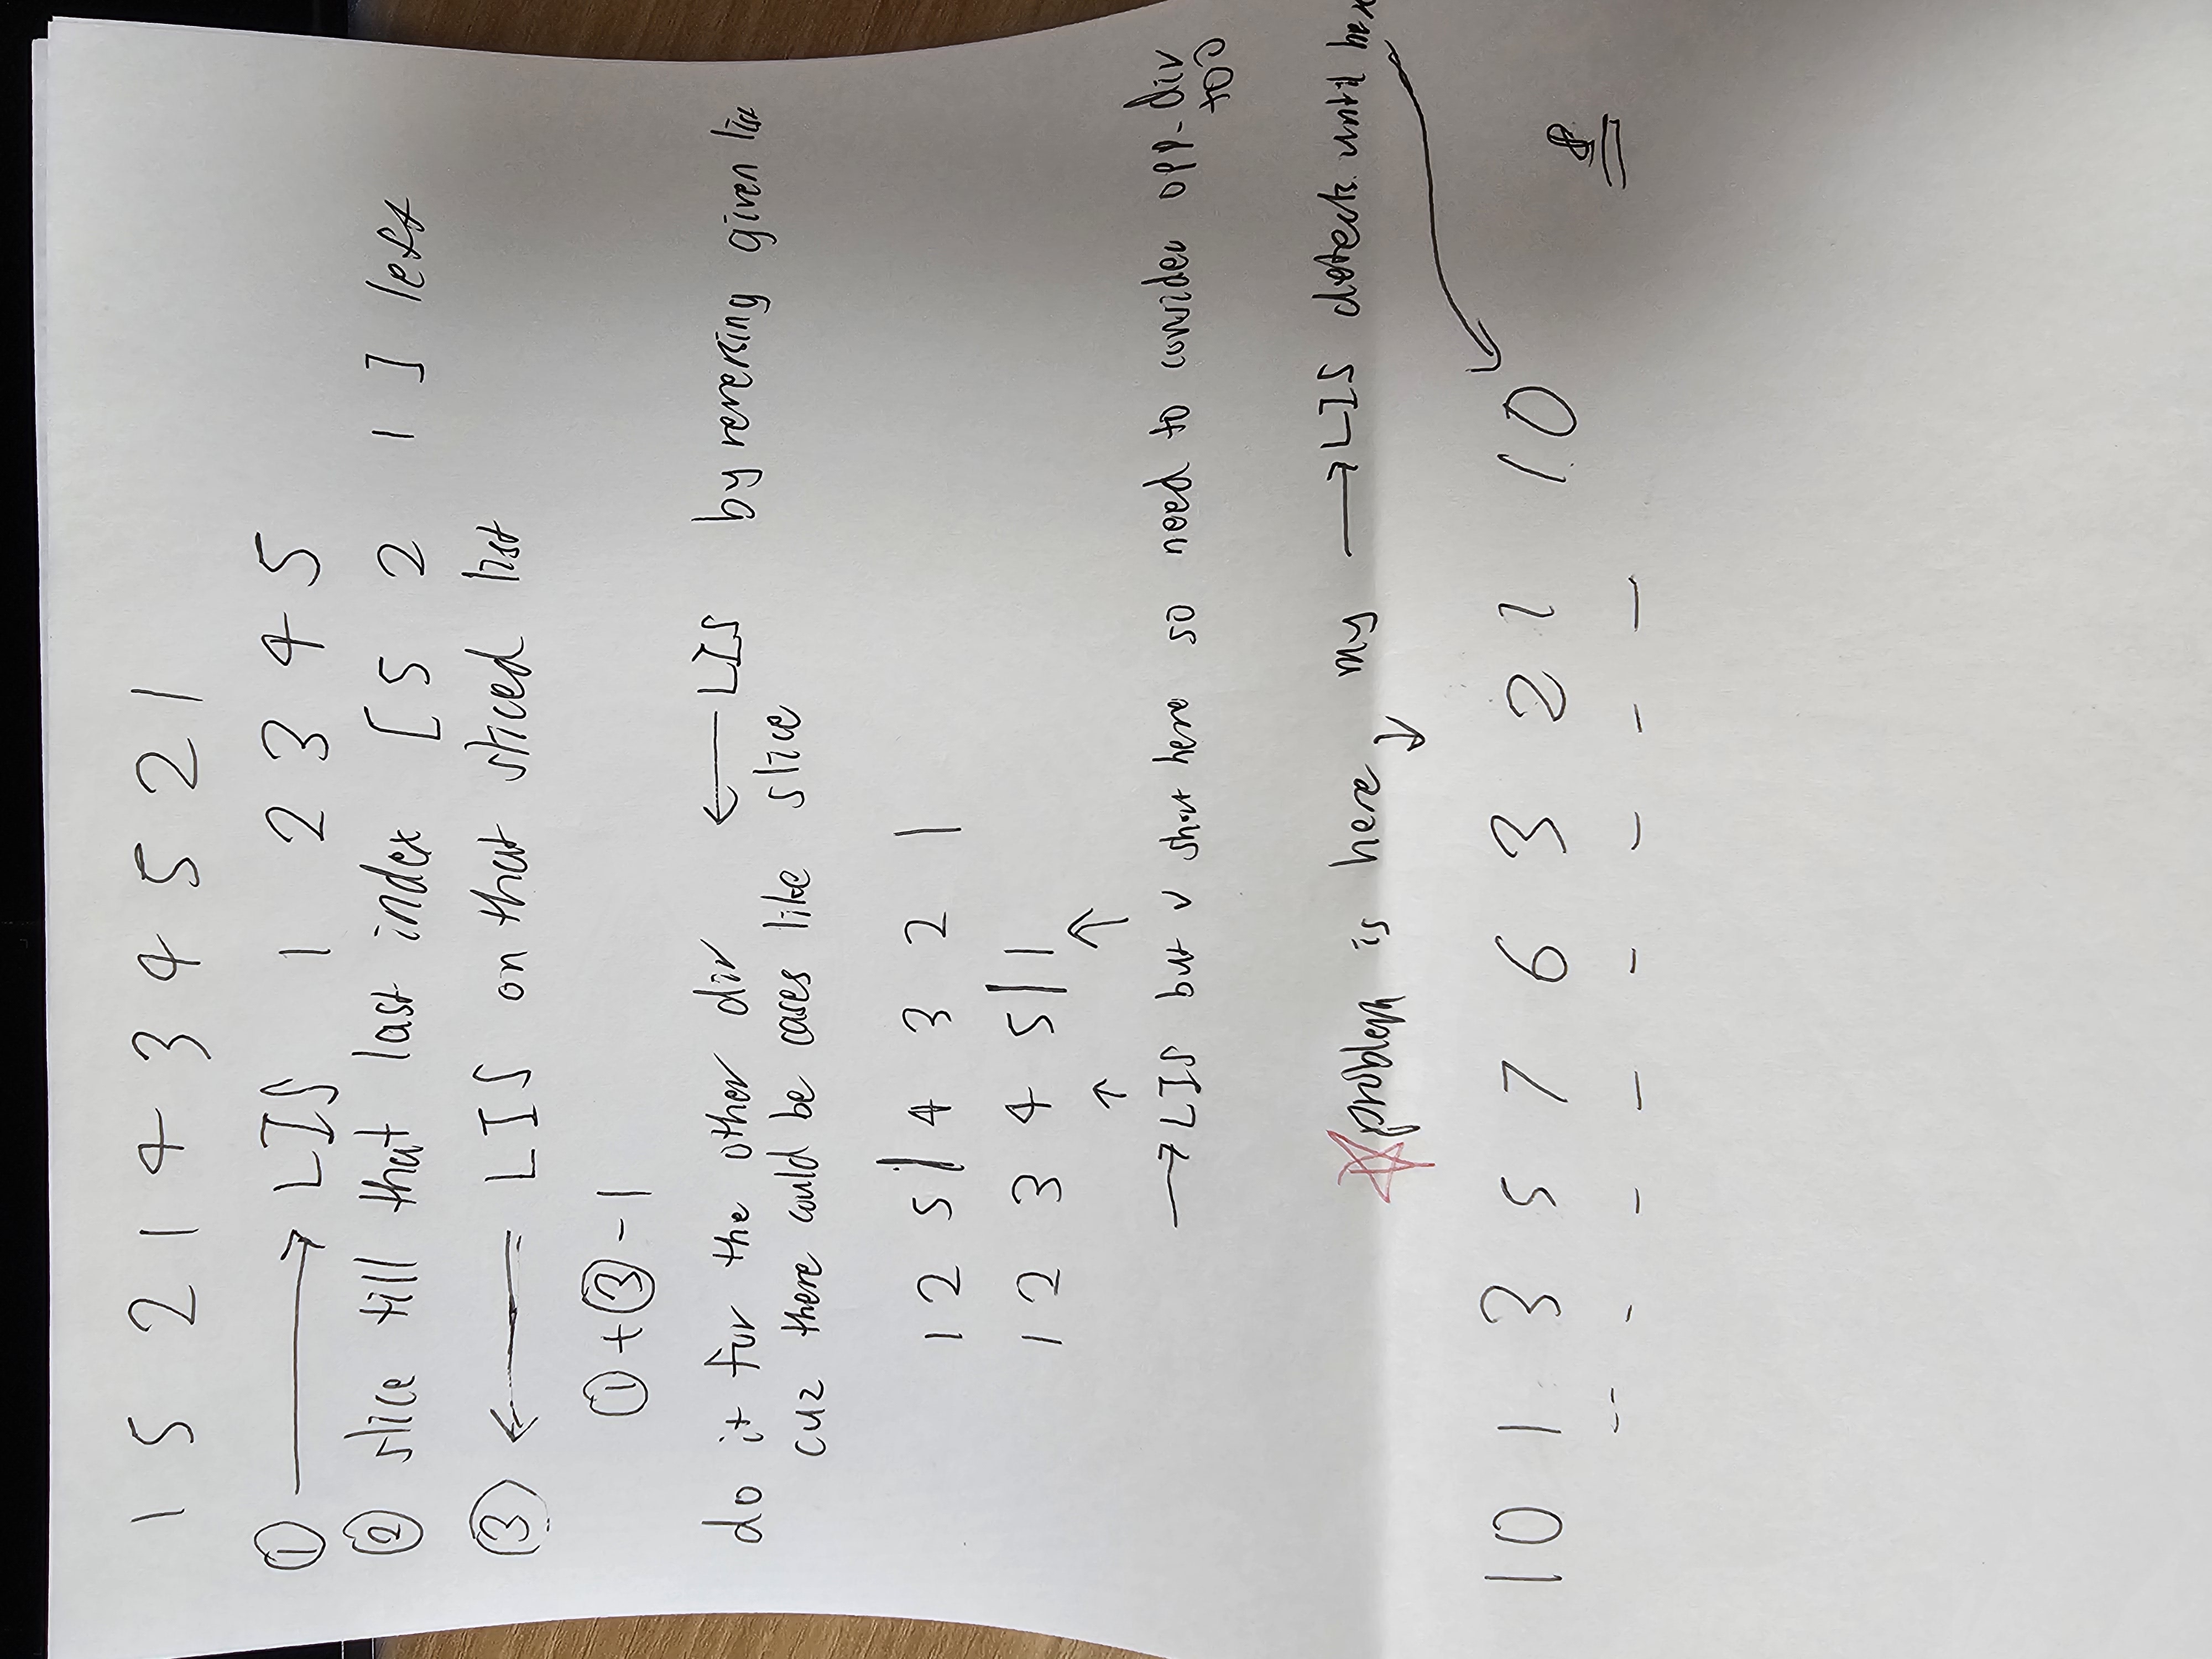 1 5 2 1 4 3 4 5 2 1
① → LIS 1 2 3 4 5
② slice till that last index [5 2 1] left
③ ← LIS on that sliced list
①+③-1
do it for the other dir ← LIS by reversing given list
cuz there could be cases like slice
1 2 5 | 4 3 2 1
1 2 3 4 5 | 1
↑ ↑
→ LIS but v short here so need to consider opp-dir too
☆ problem is here ↓ my → LIS detect until here
10 1 3 5 7 6 3 2 1 10
8